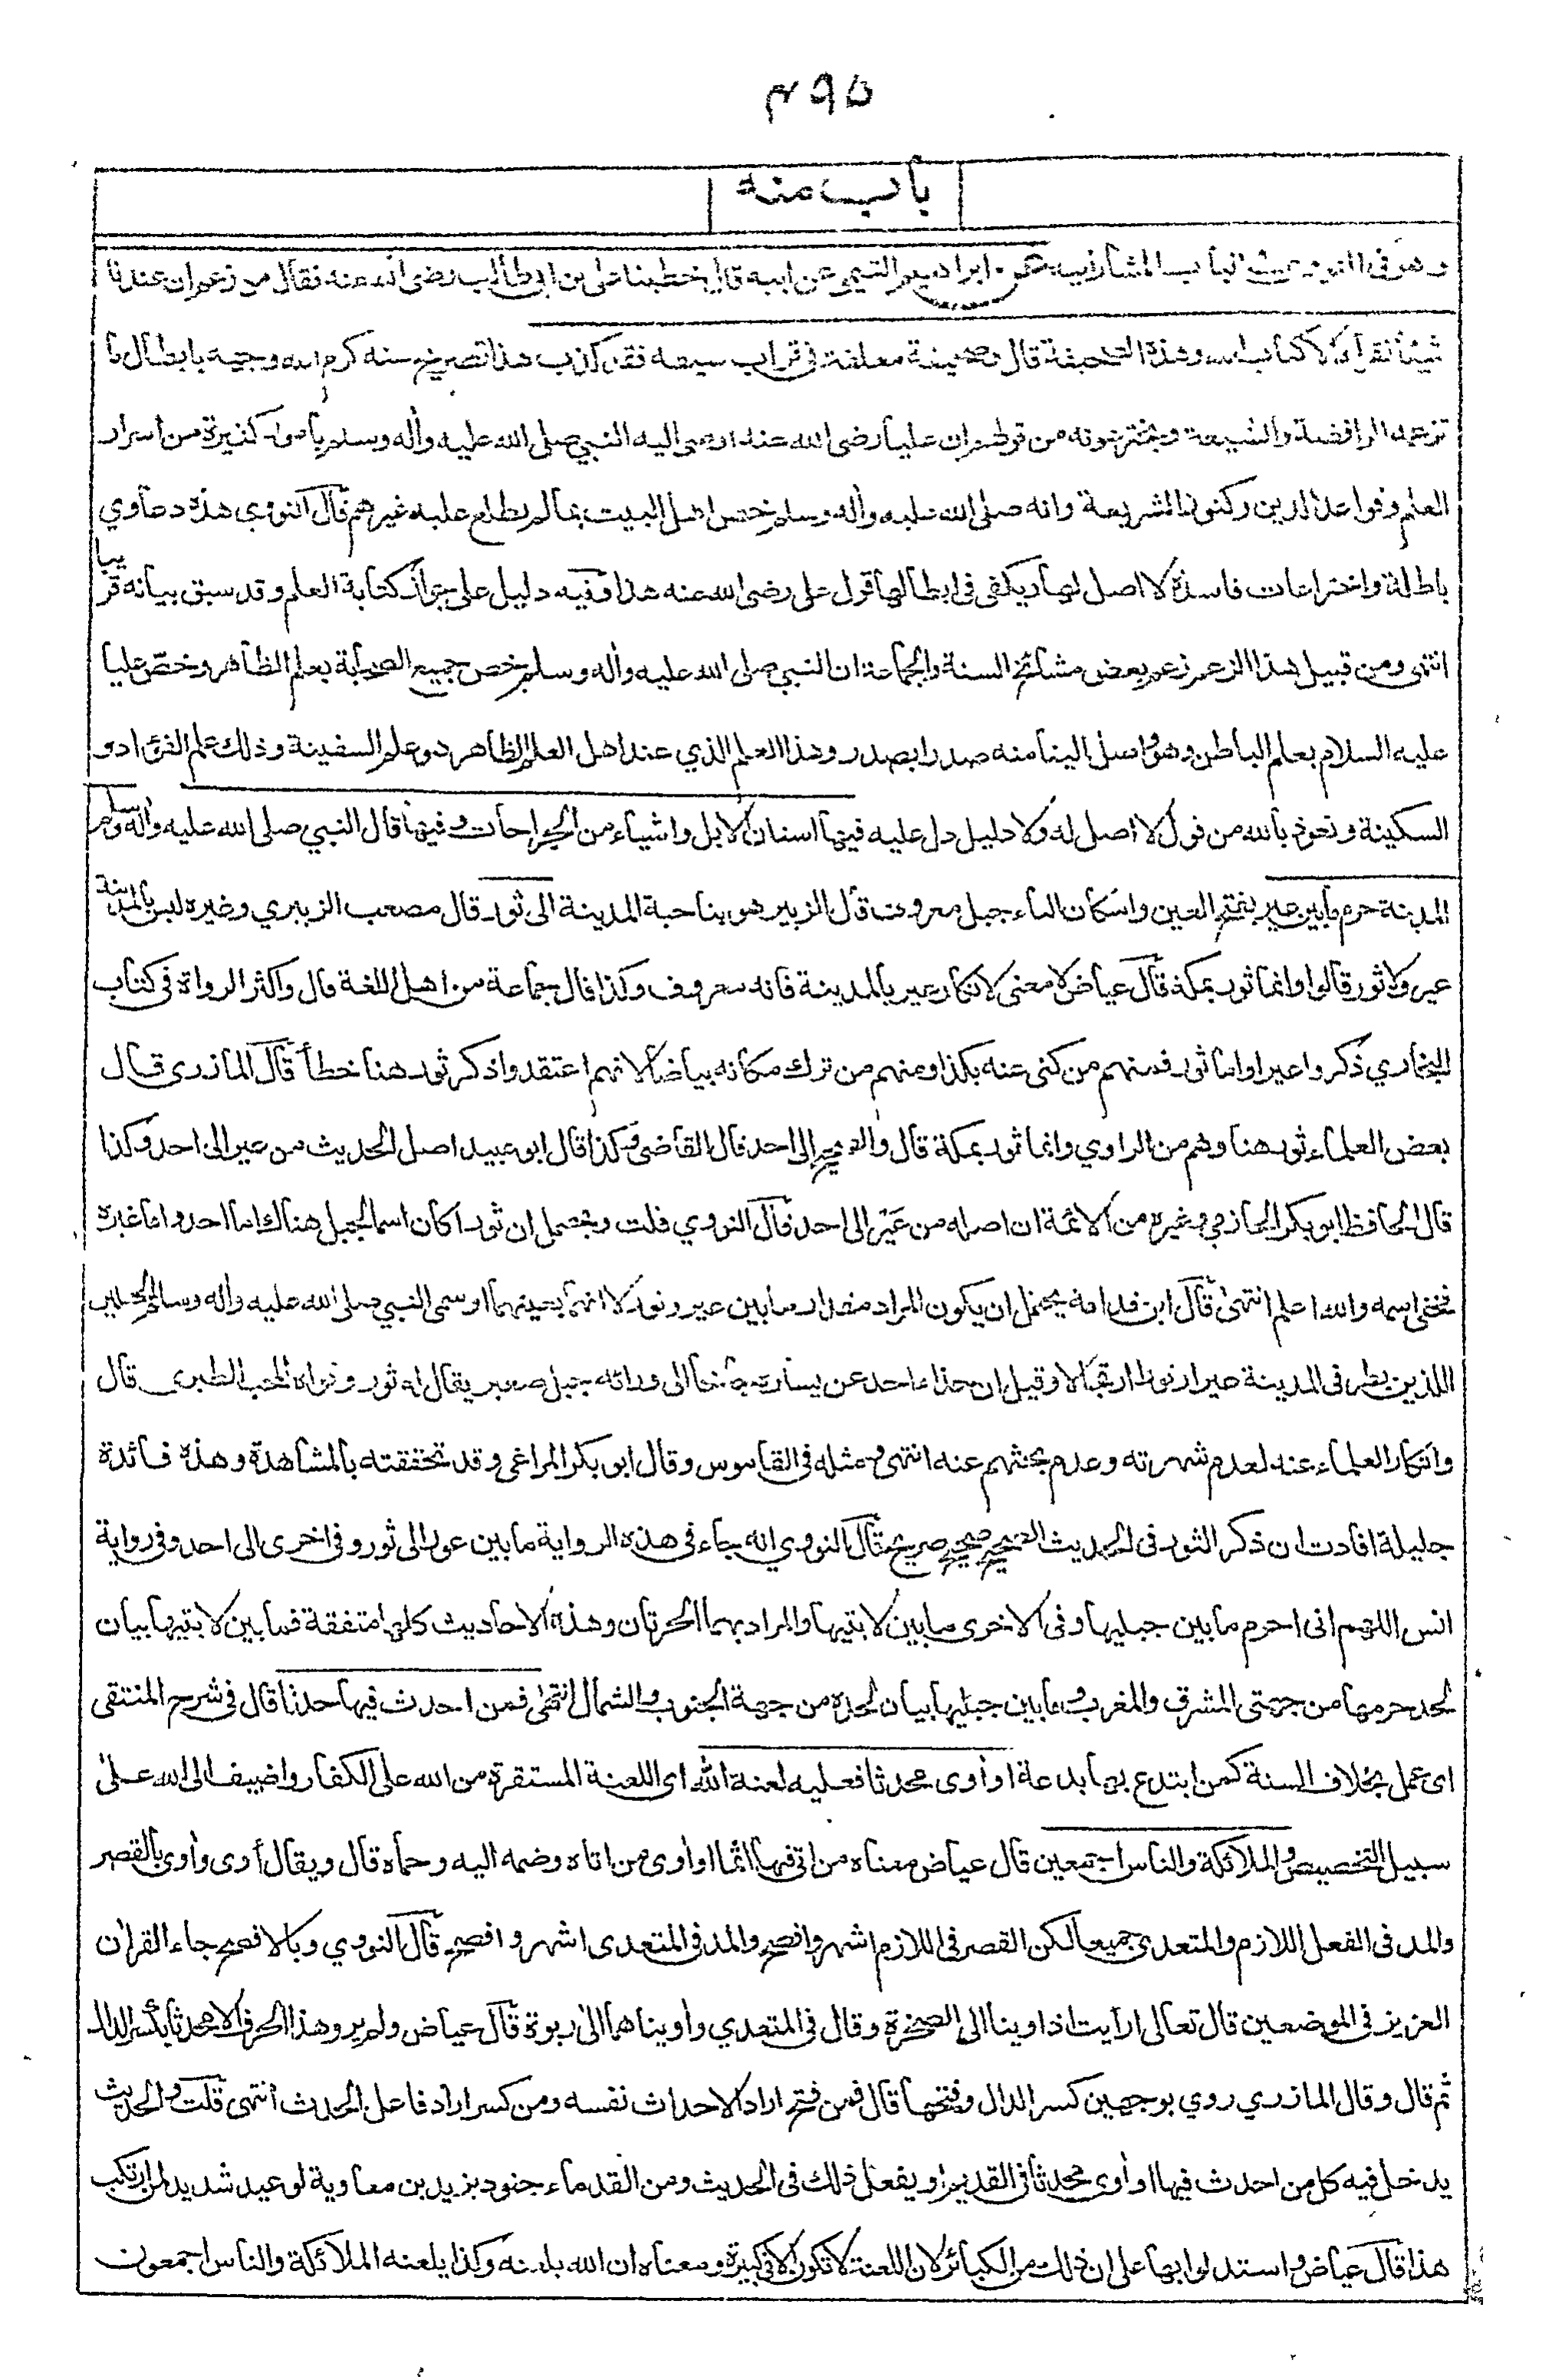 ٤٩٥
باب منه
وهو فى النووى فى الباب المشار اليه عن ابراهيم التيمى عن ابيه قال خطبنا على بن ابى طالب رضى الله عنه فقال من زعم ان عندنا
شيئا نقرأه الا كتاب الله وهذه الصحيفة قال وصحيفة معلقة فى قراب سيفه فقد كذب هذا تصريح منه كرم الله وجهه بابطال ما
تزعمه الرافضة والشيعة ويخترعونه من قولهم ان عليا رضى الله عنه اوصى اليه النبي صلى الله عليه وأله وسلم بامور كثيرة من اسرار
العلم وقواعد الدين وكنوز الشريعة وانه صلى الله عليه وأله وسلم خص اهل البيت بما لم يطلع عليه غيرهم قال النووي هذه دعاوي
باطلة واختراعات فاسدة لا اصل لها ويكفى فى ابطالها قول على رضى الله عنه هذا وفيه دليل على جواز كتابة العلم وقد سبق بيانه قريبا
انتهى ومن قبيل هذا الزعم زعم بعض مشائخ السنة والجماعة ان النبي صلى الله عليه وأله وسلم خص جميع الصحابة بعلم الظاهر وخصّ عليا
عليه السلام بعلم الباطن وهو واصل الينا منه صدرا بصدر وهذا العلم الذي عند اهل العلم الظاهر هو علم السفينة وذلك علم الفؤاد و
السكينة ونعوذ بالله من قول لا اصل له ولا دليل دل عليه فيها اسنان الابل واشياء من الجراحات وفيها قال النبي صلى الله عليه وأله وسلم
المدينة حرم ما بين عير بفتح العين واسكان الياء جبل معروف قال الزبير هو بناحية المدينة الى ثور قال مصعب الزبيري وغيره ليس بالمدينة
عير ولا ثور قالوا وانما ثور بمكة قال عياض لا معنى لانكار عير بالمدينة فانه معروف وكذا قال جماعة من اهل اللغة قال واكثر الرواة فى كتاب
البخاري ذكروا عيرا واما ثور فمنهم من كنى عنه بكذا ومنهم من ترك مكانه بياضا لانهم اعتقدوا ذكر ثور هنا خطأ قال المازرى قال
بعض العلماء ثور هنا وهم من الراوي وانما ثور بمكة قال والصحيح إلى احد قال القاضى وكذا قال ابو عبيد اصل الحديث من عير الى احد وكذا
قال الحافظ ابو بكر الحازمي وغيره من الائمة ان اصله من عَيْر الى احد قال النووي قلت ويحتمل ان ثورا كان اسما لجبل هناك اما احد واما غيره
فخفى اسمه والله اعلم انتهى قال ابن قدامة يحتمل ان يكون المراد مقدار ما بين عير وثور لا انهما بعينهما او سمى النبي صلى الله عليه وأله وسلم الجبلين
اللذين بطرفى المدينة عيرا وثورا ارتجالا وقيل ان حذاء احد عن يساره جانحا الى ورائه جبل صغير يقال له ثور وذواه المحب الطبرى قال
وانكار العلماء عنه لعدم شهرته وعدم بحثهم عنه انتهى ومثله فى القاموس وقال ابو بكر المراغى وقد تحققته بالمشاهدة وهذه فائدة
جليلة افادت ان ذكر الثور فى الحديث الصحيح صحيح صريح قال النووي انه جاء فى هذه الرواية ما بين عير الى ثور وفى اخرى الى احد وفى رواية
انس اللهم انى احرم ما بين جبليها وفى الاخرى ما بين لابتيها والمراد بهما الحرتان وهذه الاحاديث كلها متفقة فما بين لابتيها بيان
لحد حرمها من جهتى المشرق والمغرب وما بين جبليها بيان لحده من جهة الجنوب والشمال انتهى فمن احدث فيها حدثا قال فى شرح المنتقى
اى عمل بخلاف السنة كمن ابتدع بها بدعة او أوى محدثا فعليه لعنة الله اى اللعنة المستقرة من الله على الكفار واضيف الى الله على
سبيل التخصيص والملائكة والناس اجمعين قال عياض معناه من اتى فيها اثما او أوى من اتاه وضمه اليه وحماه قال ويقال أوى وأوى بالقصر
والمد فى الفعل اللازم والمتعدى جميعا لكن القصر فى اللازم اشهر وافصح والمد فى المتعدى اشهر وافصح قال النووي وبالافصح جاء القرأن
العزيز فى الموضعين قال تعالى ارأيت اذ اوينا الى الصخرة وقال فى المتعدي وأويناهما الى ربوة قال عياض ولم يرو هذا الحرف الا محدثا بكسر الدال
ثم قال وقال المازري روي بوجهين كسر الدال وفتحها قال فمن فتح اراد الاحداث نفسه ومن كسر اراد فاعل الحدث انتهى قلت والحديث
يدخل فيه كل من احدث فيها او أوى محدثا فى القديم او يفعل ذلك فى الحديث ومن القدماء جنود يزيد بن معاوية لوعيد شديد لمن ارتكب
هذا قال عياض واستدلوا بها على ان ذلك من الكبائر لان اللعنة لا تكون الا فى كبيرة ومعناه ان الله يلعنه وكذا يلعنه الملائكة والناس اجمعون